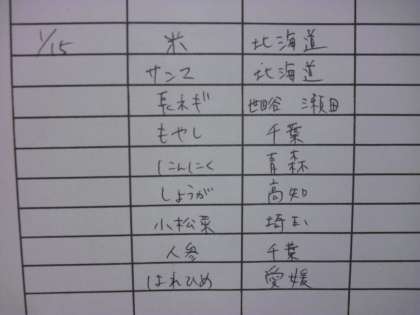 1/15 米 北海道
サンマ 北海道
長ネギ 世田谷 瀬田
もやし 千葉
にんにく 青森
しょうが 高知
小松菜 埼玉
人参 千葉
はれひめ 愛媛